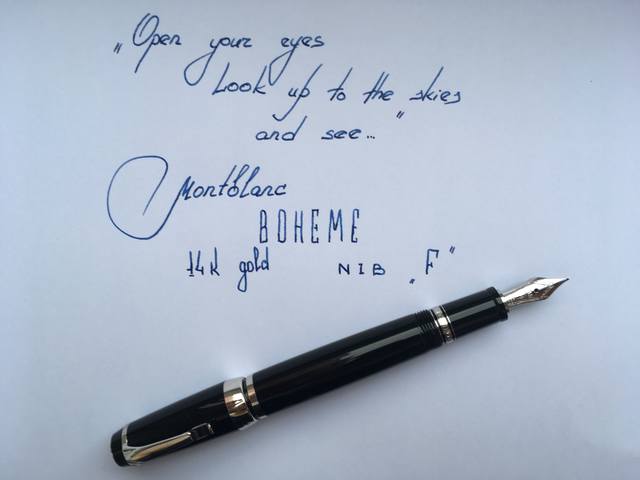 „Open your eyes
Look up to the skies
and see..."
Montblanc
BOHEME
14K gold NIB „F"